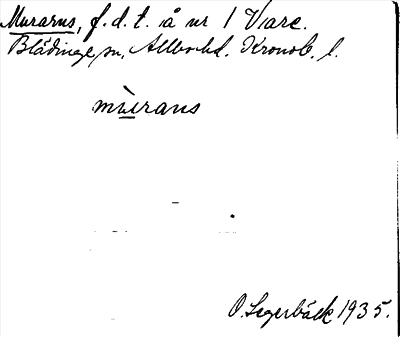 Murarns, f.d.t. å nr 1 Vare.
Blädinge sn, Allbo hd. Kronob. l.
mùrans
O. Segerbäck 1935.